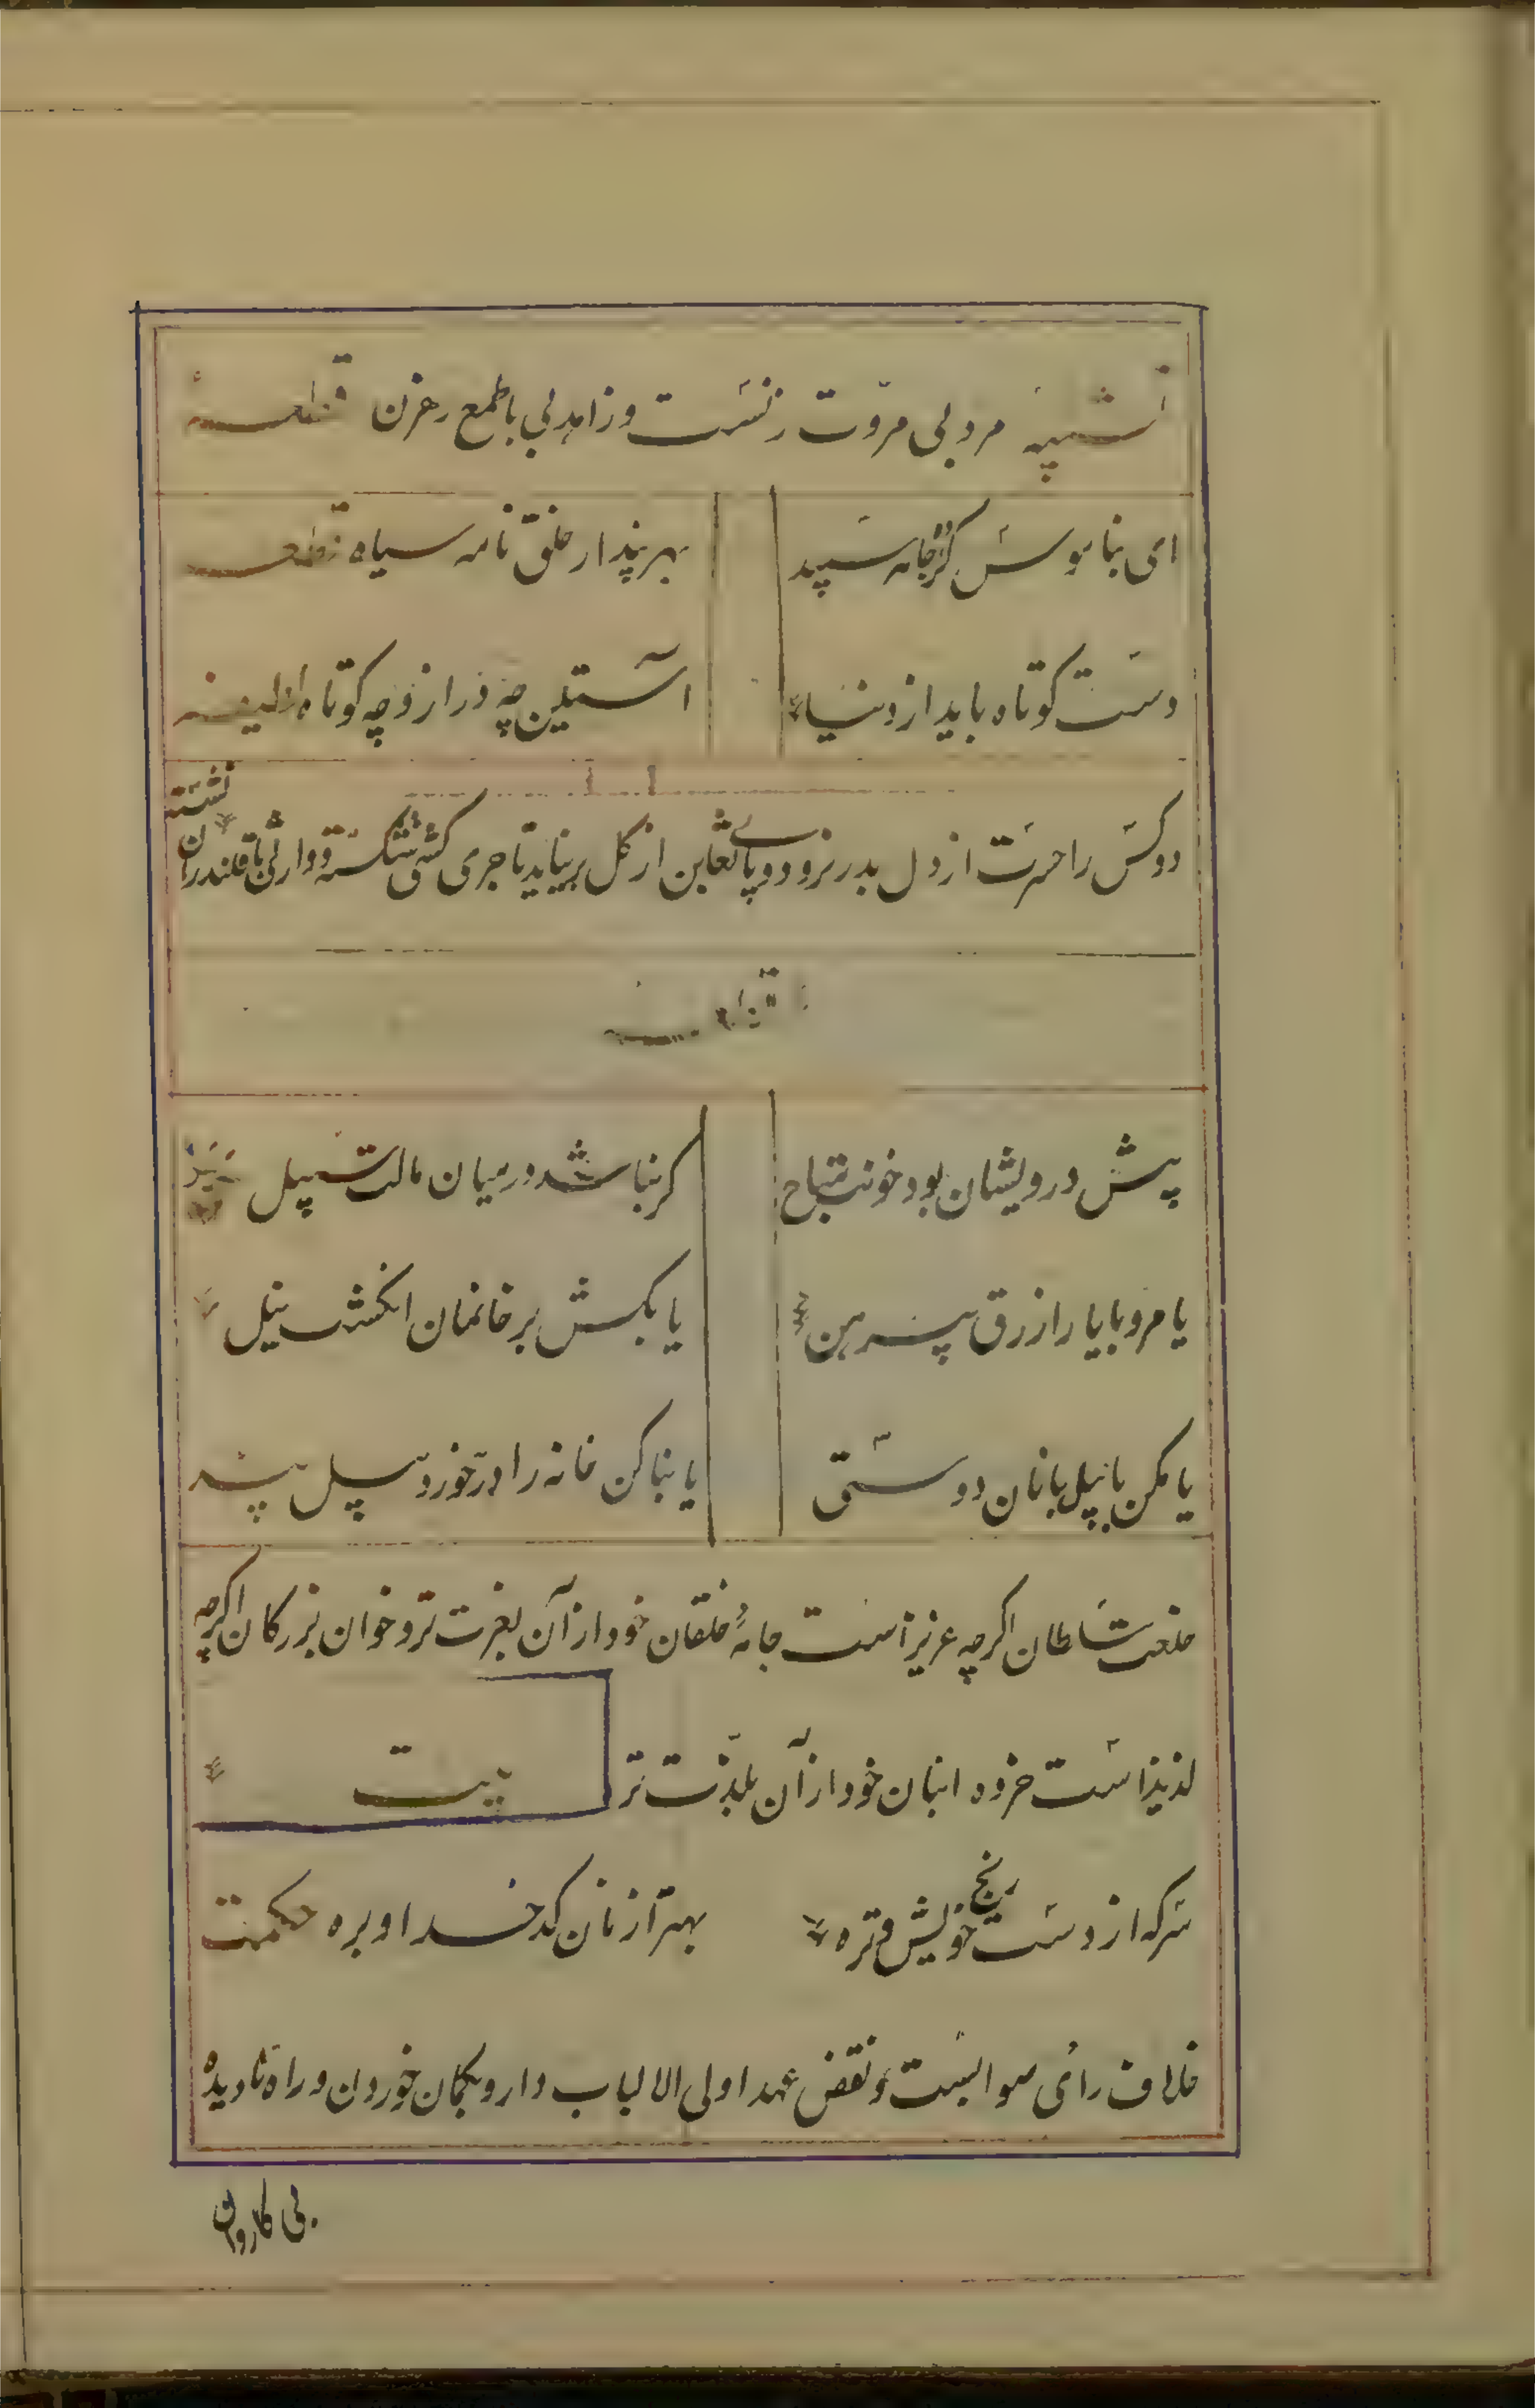 تشبیه مرد بی مروّت زنست و زاهد بی با طمع رهزن قطعه
ای بناموس کرده جامه سپید بهر پندار خلق نامه سیاه قطعه
دست کوتاه باید از دنیا آستین چه دراز و چه کوتاه
دو کس را حسرت از دل بدر نرود و پای تغابن از گل برنیاید تاجری کشتی شکسته و وارثی با قلندران نشسته
قطعه
پیش درویشان بود خونت مباح کر نباشد در میان مالت سبیل
یا مرو با یار ازرق پیرهن یا بکش بر خانمان انکشت نیل
یا مکن با پیل بانان دوستی یا بنا کن خانه را در خورد پیل
خلعت سلطان اکرچه عزیز است جامهٔ خلقان خود از آن بعزت تر و خوان بزرکان اکرچه
لذیذ است خرده انبان خود از آن بلذّت تر بیت
سرکه از دست رنج خویش و تره بهتر از نان کدخدا و بره حکمت
خلاف رائی صوابست و نقض عهد اولی الالباب دارو بکمان خوردن و راه نادیده
بی کاروان